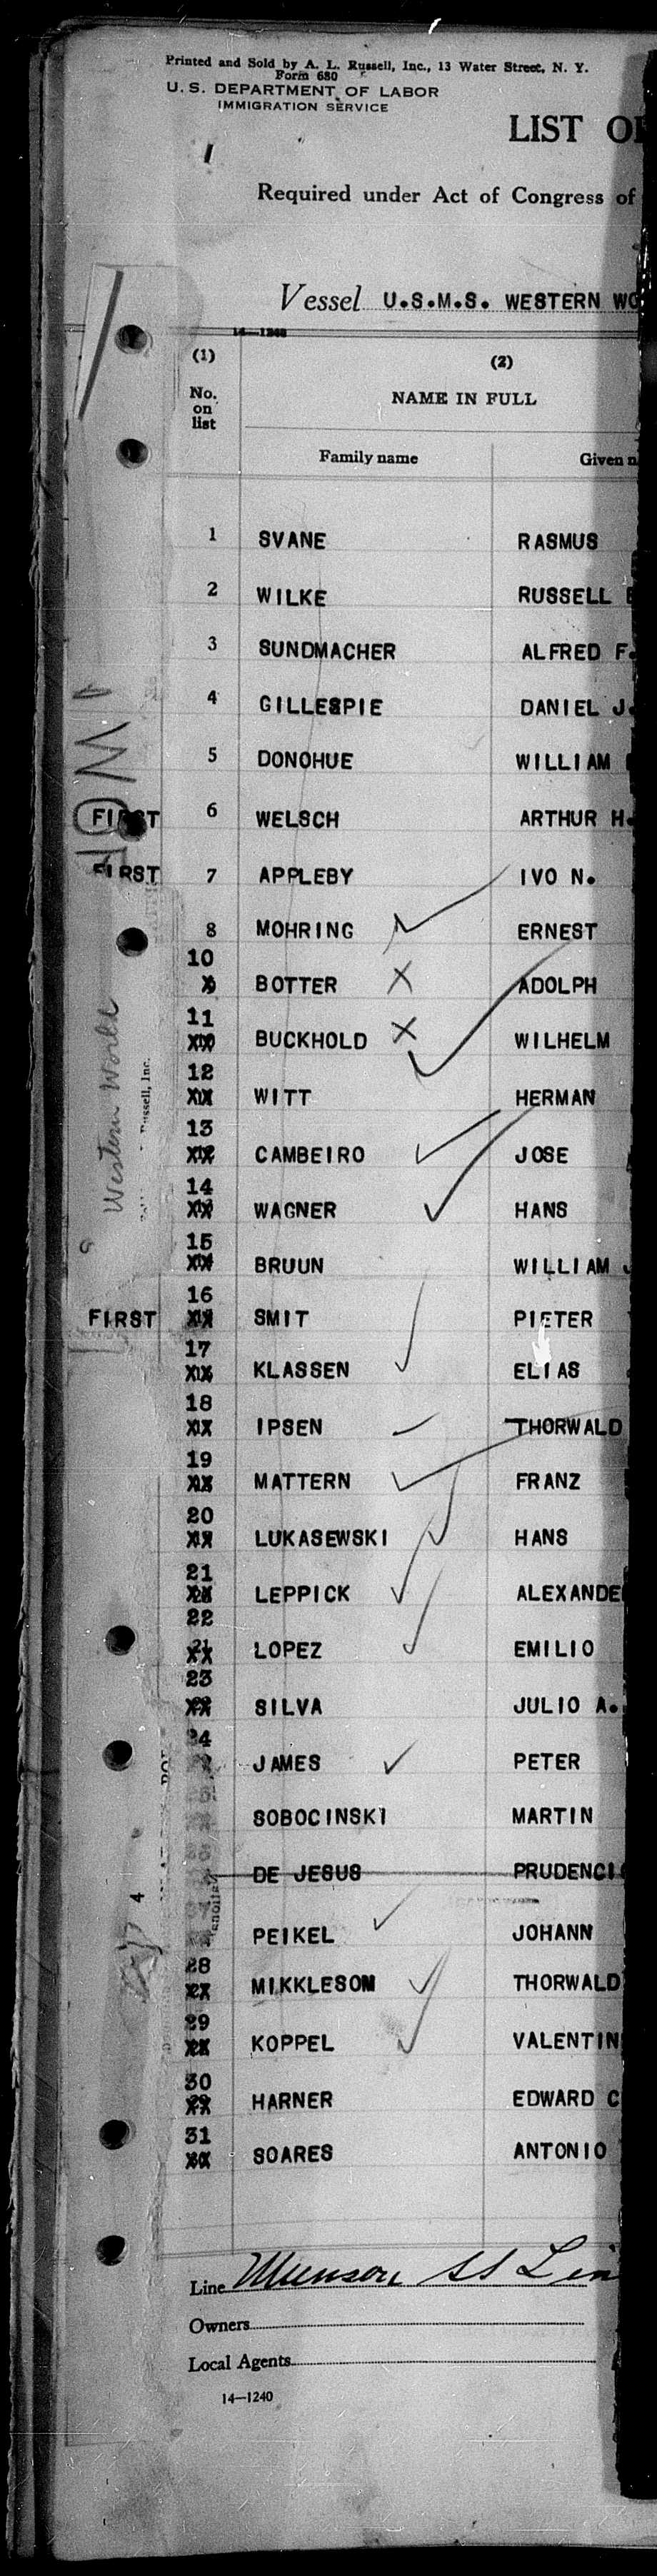 Printed and Sold by A. L. Russell, Inc., 13 Water Street, N. Y.
Form 680
U. S. DEPARTMENT OF LABOR
IMMIGRATION SERVICE
LIST O
Required under Act of Congress of
Vessel U.S.M.S. WESTERN WO
14—1240
(1) (2)
No. on list NAME IN FULL
Family name Given n
1 SVANE RASMUS
2 WILKE RUSSELL
3 SUNDMACHER ALFRED F.
4 GILLESPIE DANIEL J.
5 DONOHUE WILLIAM
FIRST 6 WELSCH ARTHUR H.
FIRST 7 APPLEBY IVO N.
8 MOHRING ERNEST
10 BOTTER ADOLPH
11 BUCKHOLD WILHELM
12 WITT HERMAN
13 CAMBEIRO JOSE
14 WAGNER HANS
15 BRUUN WILLIAM
FIRST 16 SMIT PIETER
17 KLASSEN ELIAS
18 IPSEN THORWALD
19 MATTERN FRANZ
20 LUKASEWSKI HANS
21 LEPPICK ALEXANDE
22 LOPEZ EMILIO
23 SILVA JULIO A.
24 JAMES PETER
SOBOCINSKI MARTIN
DE JESUS PRUDENCI
PEIKEL JOHANN
28 MIKKLESOM THORWALD
29 KOPPEL VALENTIN
30 HARNER EDWARD C
31 SOARES ANTONIO
Western World
Russell, Inc.
4
Line Munson SS Lin
Owners
Local Agents
14—1240